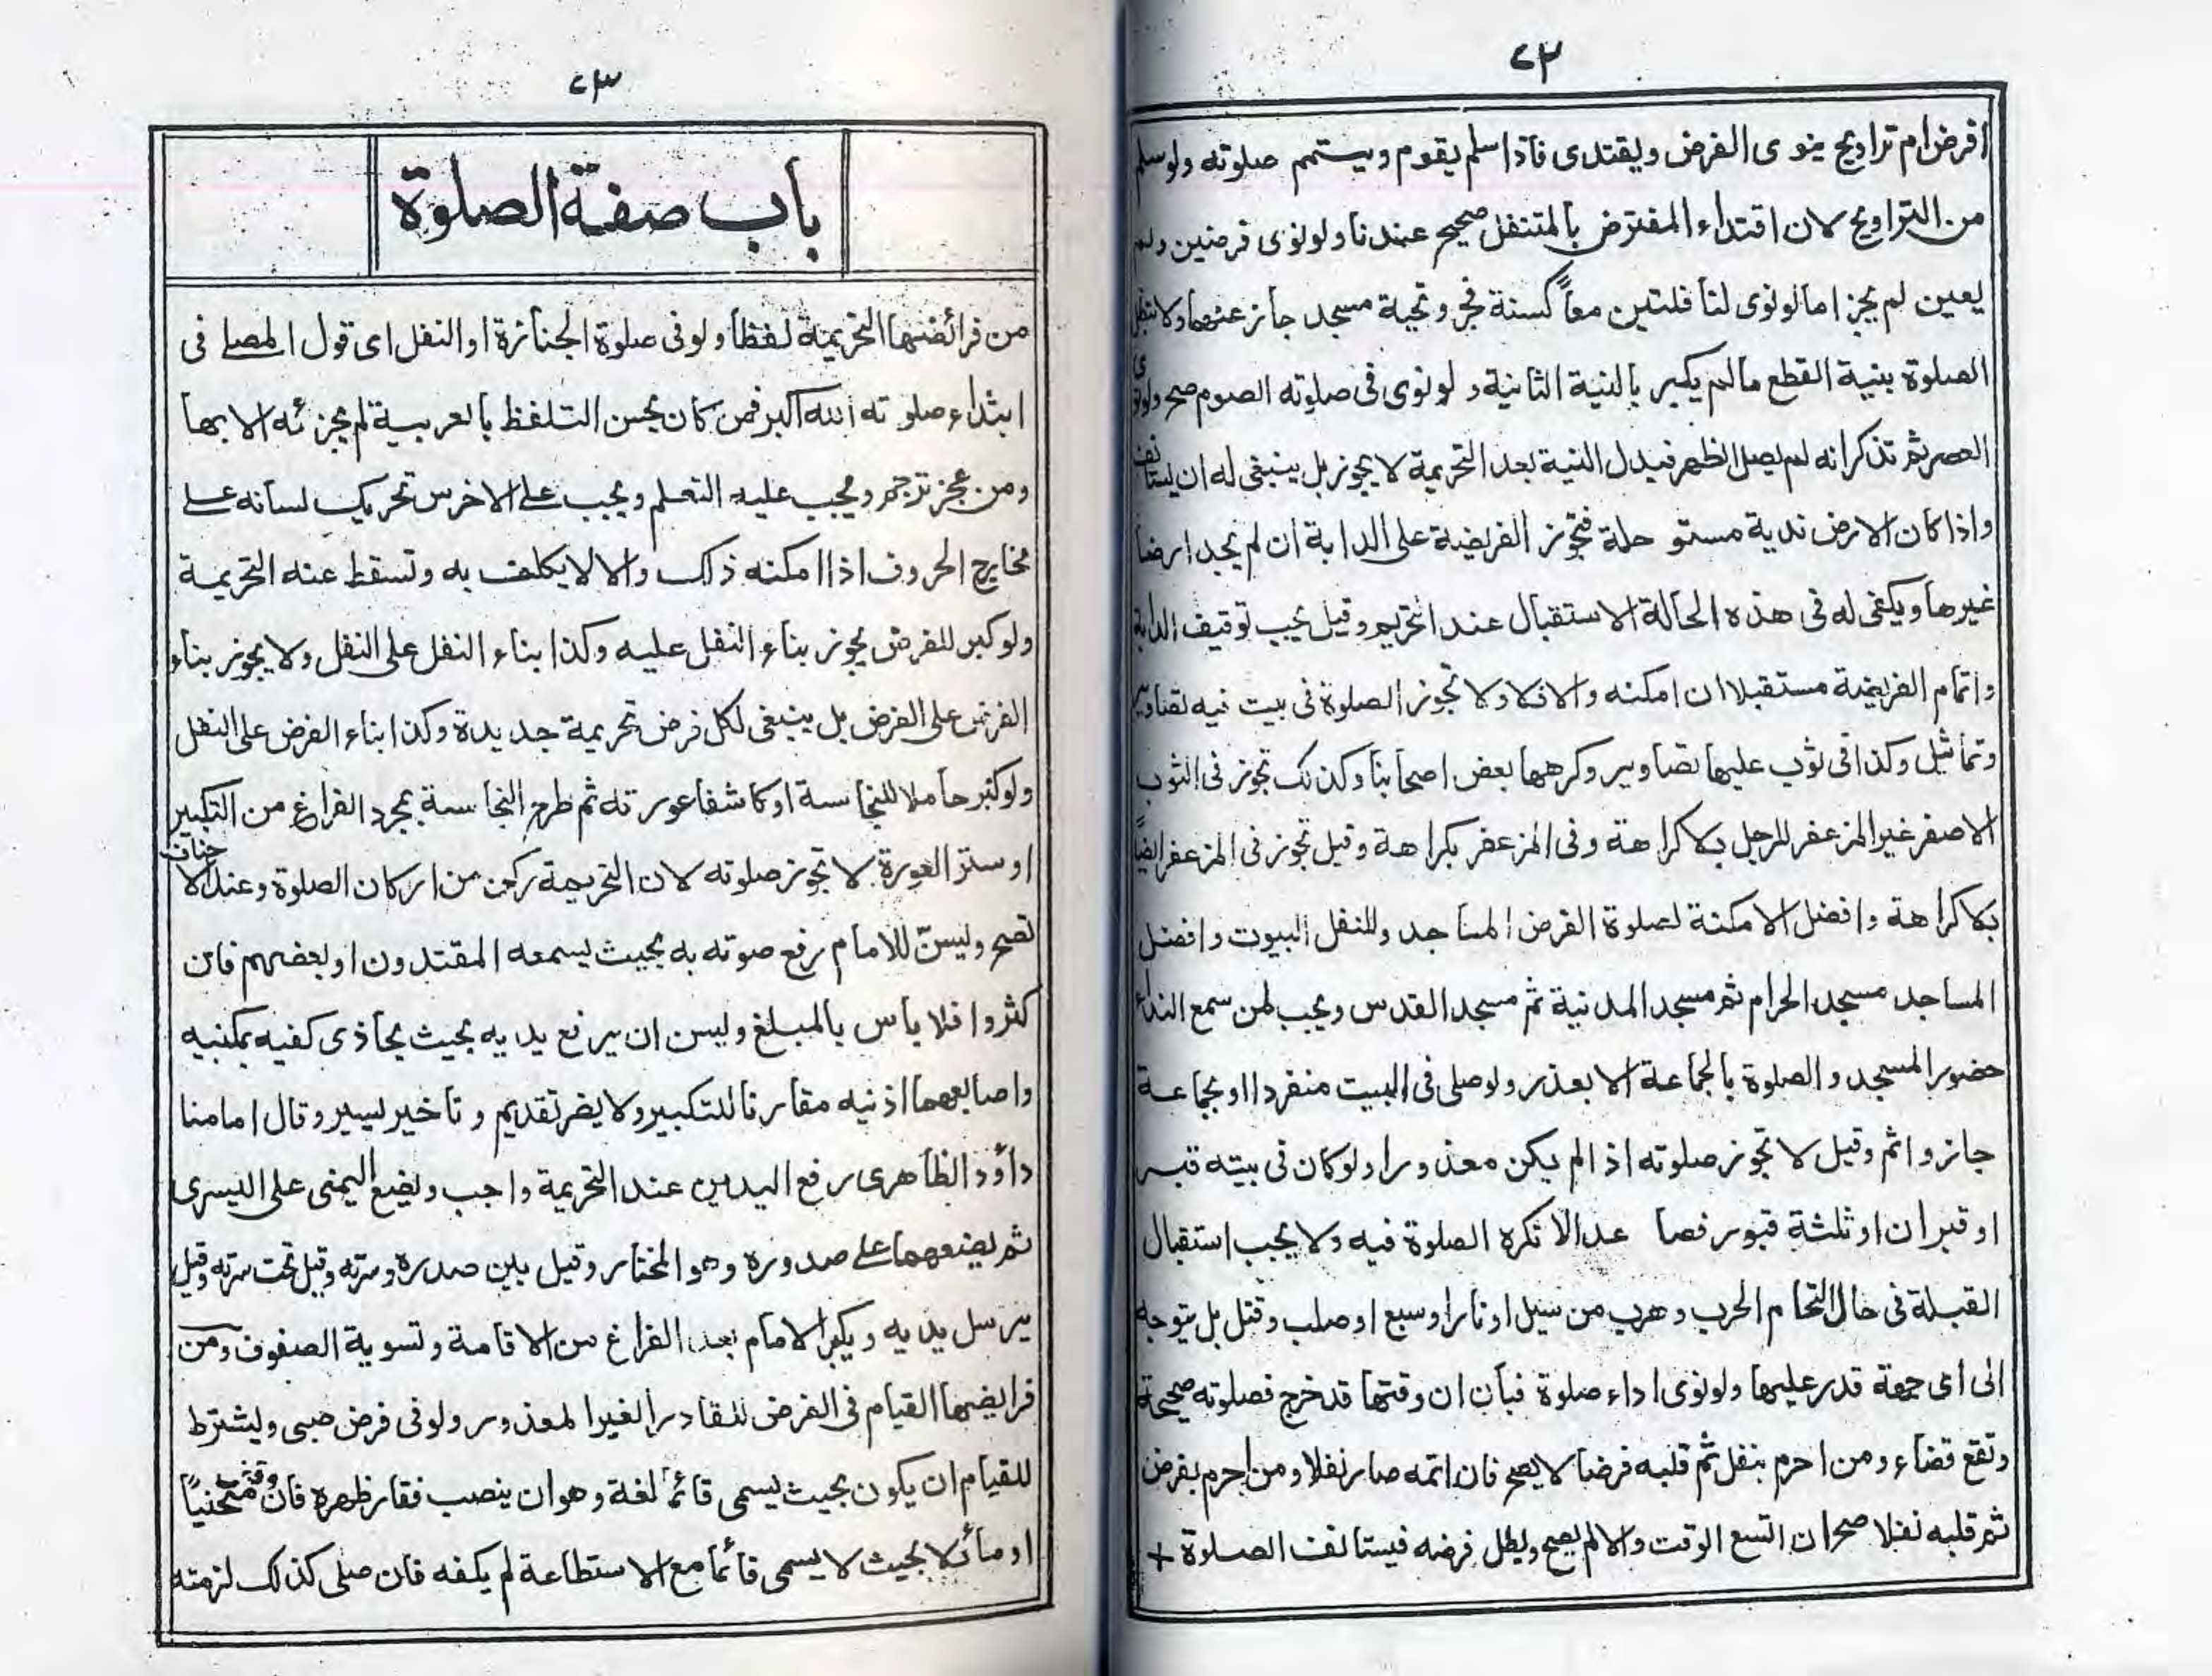 ٤٢
افرض ام تراويح ينوى الفرض ويقتدى فاذا سلم يقوم ويستمم صلوته ولو سلم
من التراويح لان اقتداء المفترض بالمتنفل صحيح عندنا ولو نوى فرضين ولم
يعين لم يجز اما لو نوى لنافلتين معاً كسنة فجر وتحية مسجد جاز عنهما ولا تبطل
الصلوة بنية القطع مالم يكبر بالنية الثانية ولو نوى فى صلوته الصوم صح ولو نوى
العصر ثم تذكر انه لم يصل الظهر فبدل النية بعد التحريمة لا يجوز بل ينبغى له ان يستانف
واذا كان الارض ندية مستو حلة فتجوز الفريضة على الدابة ان لم يجد ارضا
غيرها ويكفى له فى هذه الحالة الاستقبال عند التحريم وقيل يجب توقيف الدابة
واتمام الفريضة مستقبلا ان امكنه والا فلا ولا تجوز الصلوة فى بيت فيه تصاوير
وتماثيل وكذا فى ثوب عليها تصاوير وكرهها بعض اصحابنا وكذلك تجوز فى الثوب
الاصفر غير المزعفر للرجل بلا كراهة وفى المزعفر بكراهة وقيل تجوز فى المزعفر ايضاً
بلا كراهة وافضل الامكنة لصلوة الفرض المساجد وللنفل البيوت وافضل
المساجد مسجد الحرام ثم مسجد المدنية ثم مسجد القدس ويجب لمن سمع النداء
حضور المسجد والصلوة بالجماعة الا بعذر ولو صلى فى البيت منفردا او بجماعة
جاز واثم وقيل لا تجوز صلوته اذا لم يكن معذورا ولو كان فى بيته قبر
او قبران او ثلثة قبور فصا عدالا تكره الصلوة فيه ولا يجب استقبال
القبلة فى حال التحام الحرب وهرب من سيل او نار او سبع او صلب وقتل بل يتوجه
الى اى جهة قدر عليها ولو نوى اداء صلوة فبان ان وقتها قد خرج فصلوته صحيحة
وتقع قضاء ومن احرم بنفل ثم قلبه فرضا لا يصح فان اتمه صار نفلا ومن احرم بفرض
ثم قلبه نفلا صح ان اتسع الوقت والا لم يصح وبطل فرضه فيستانف الصلوة +
٤٣
باب صفة الصلوة
من فرائضها التحريمية لفظا ولو فى صلوة الجنازة او النفل اى قول المصلى فى
ابتداء صلوته الله اكبر فمن كان يحسن التلفظ بالعربية لم يجزئه الا بها
ومن عجز ترجم ويجب عليه التعلم ويجب على الاخرس تحريك لسانه على
مخارج الحروف اذا امكنه ذلك والا لا يكلف به وتسقط عنه التحريمة
ولو كبر للفرض يجوز بناء النفل عليه وكذا بناء النفل على النفل ولا يجوز بناء
الفرض على الفرض بل ينبغى لكل فرض تحريمة جديدة وكذا بناء الفرض على النفل
ولو كبر حاملا للنجاسة او كاشفا عورته ثم طرح النجاسة بمجرد الفراغ من التكبير
او ستر العورة لا تجوز صلوته لان التحريمة ركن من اركان الصلوة وعند الاحناف
تصح وليسنّ للامام رفع صوته به بحيث يسمعه المقتدون او بعضهم فان
كثروا فلا باس بالمبلغ وليسن ان يرفع يديه بحيث يحاذى كفيه بمكنبيه
واصابعهما اذنيه مقارنا للتكبير ولا يضر تقديم وتاخير ليسير وقال امامنا
داؤد الظاهرى رفع اليدين عند التحريمة واجب وليضع اليمنى على اليسرى
ثم ليضعهما على صدوره وهو المختار وقيل بين صدره وسرته وقيل تحت سرته وقيل
يرسل يديه ويكبر الامام بعد الفراغ من الاقامة وتسوية الصفوف ومن
فرايضها القيام فى الفرض للقادر الغير المعذور ولو فى فرض صبى وليشترط
للقيام ان يكون بحيث ليسمى قائماً لغة وهو ان ينصب فقار ظهره فان وقف منحنياً
او مائلا بحيث لا يسمى قائما مع الاستطاعة لم يكفه فان صلى كذلك لزمته